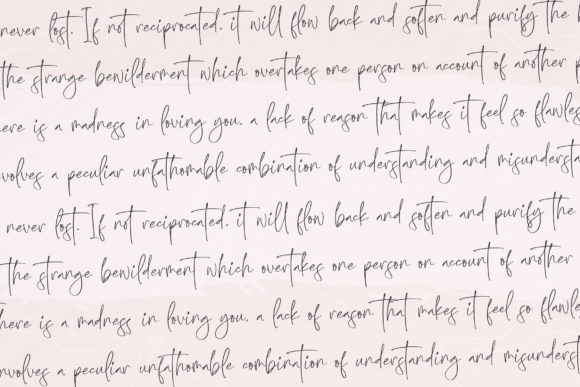 never lost. If not reciprocated, it will flow back and soften and purify the
the strange bewilderment which overtakes one person on account of another p
ere is a madness in loving you, a lack of reason that makes it feel so flawles
volves a peculiar unfathomable combination of understanding and misundersta
never lost. If not reciprocated, it will flow back and soften and purify the
the strange bewilderment which overtakes one person on account of another
here is a madness in loving you, a lack of reason that makes it feel so flawles
nvolves a peculiar unfathomable combination of understanding and misunderst